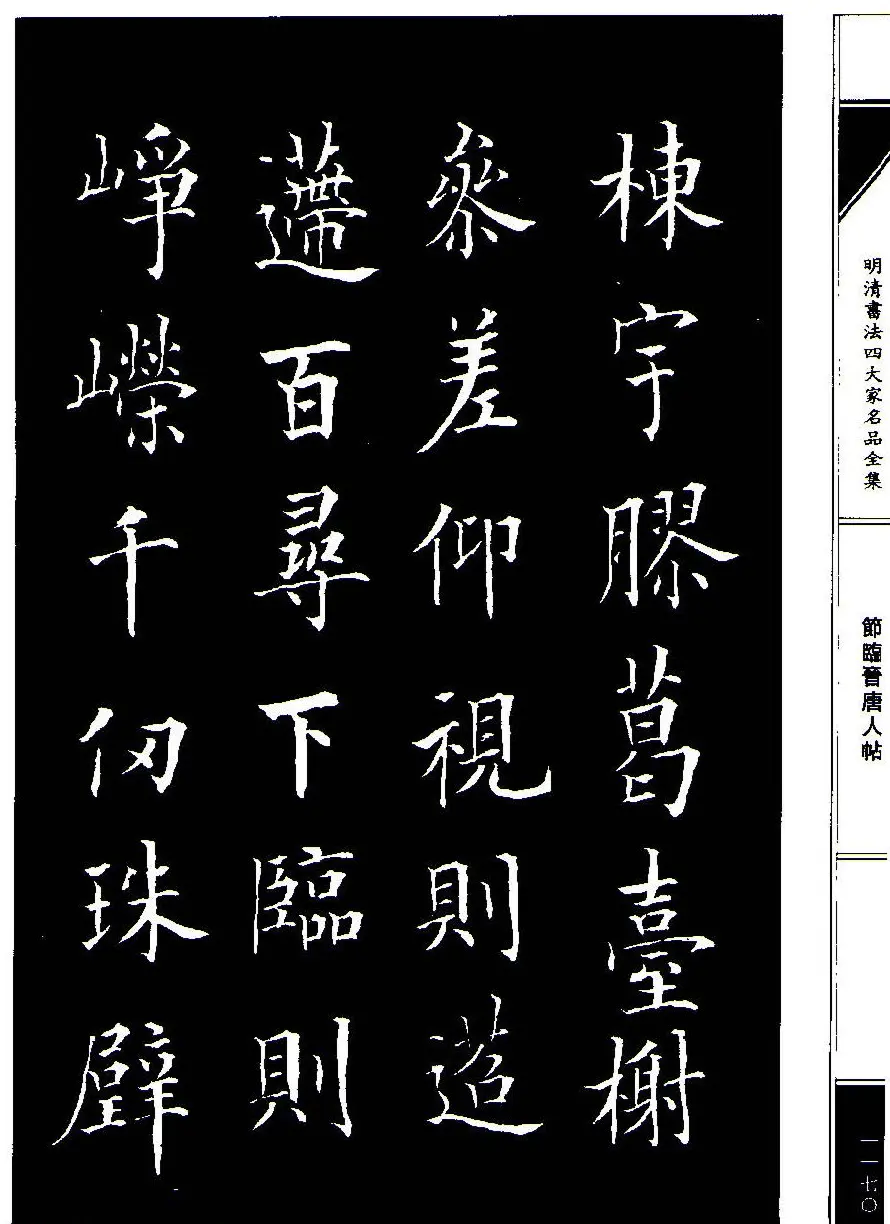 棟宇膠葛臺榭
參差仰視則迢
遰百尋下臨則
崢嶸千仞珠璧
明清書法四大家名品全集
節臨晉唐人帖
一一七〇